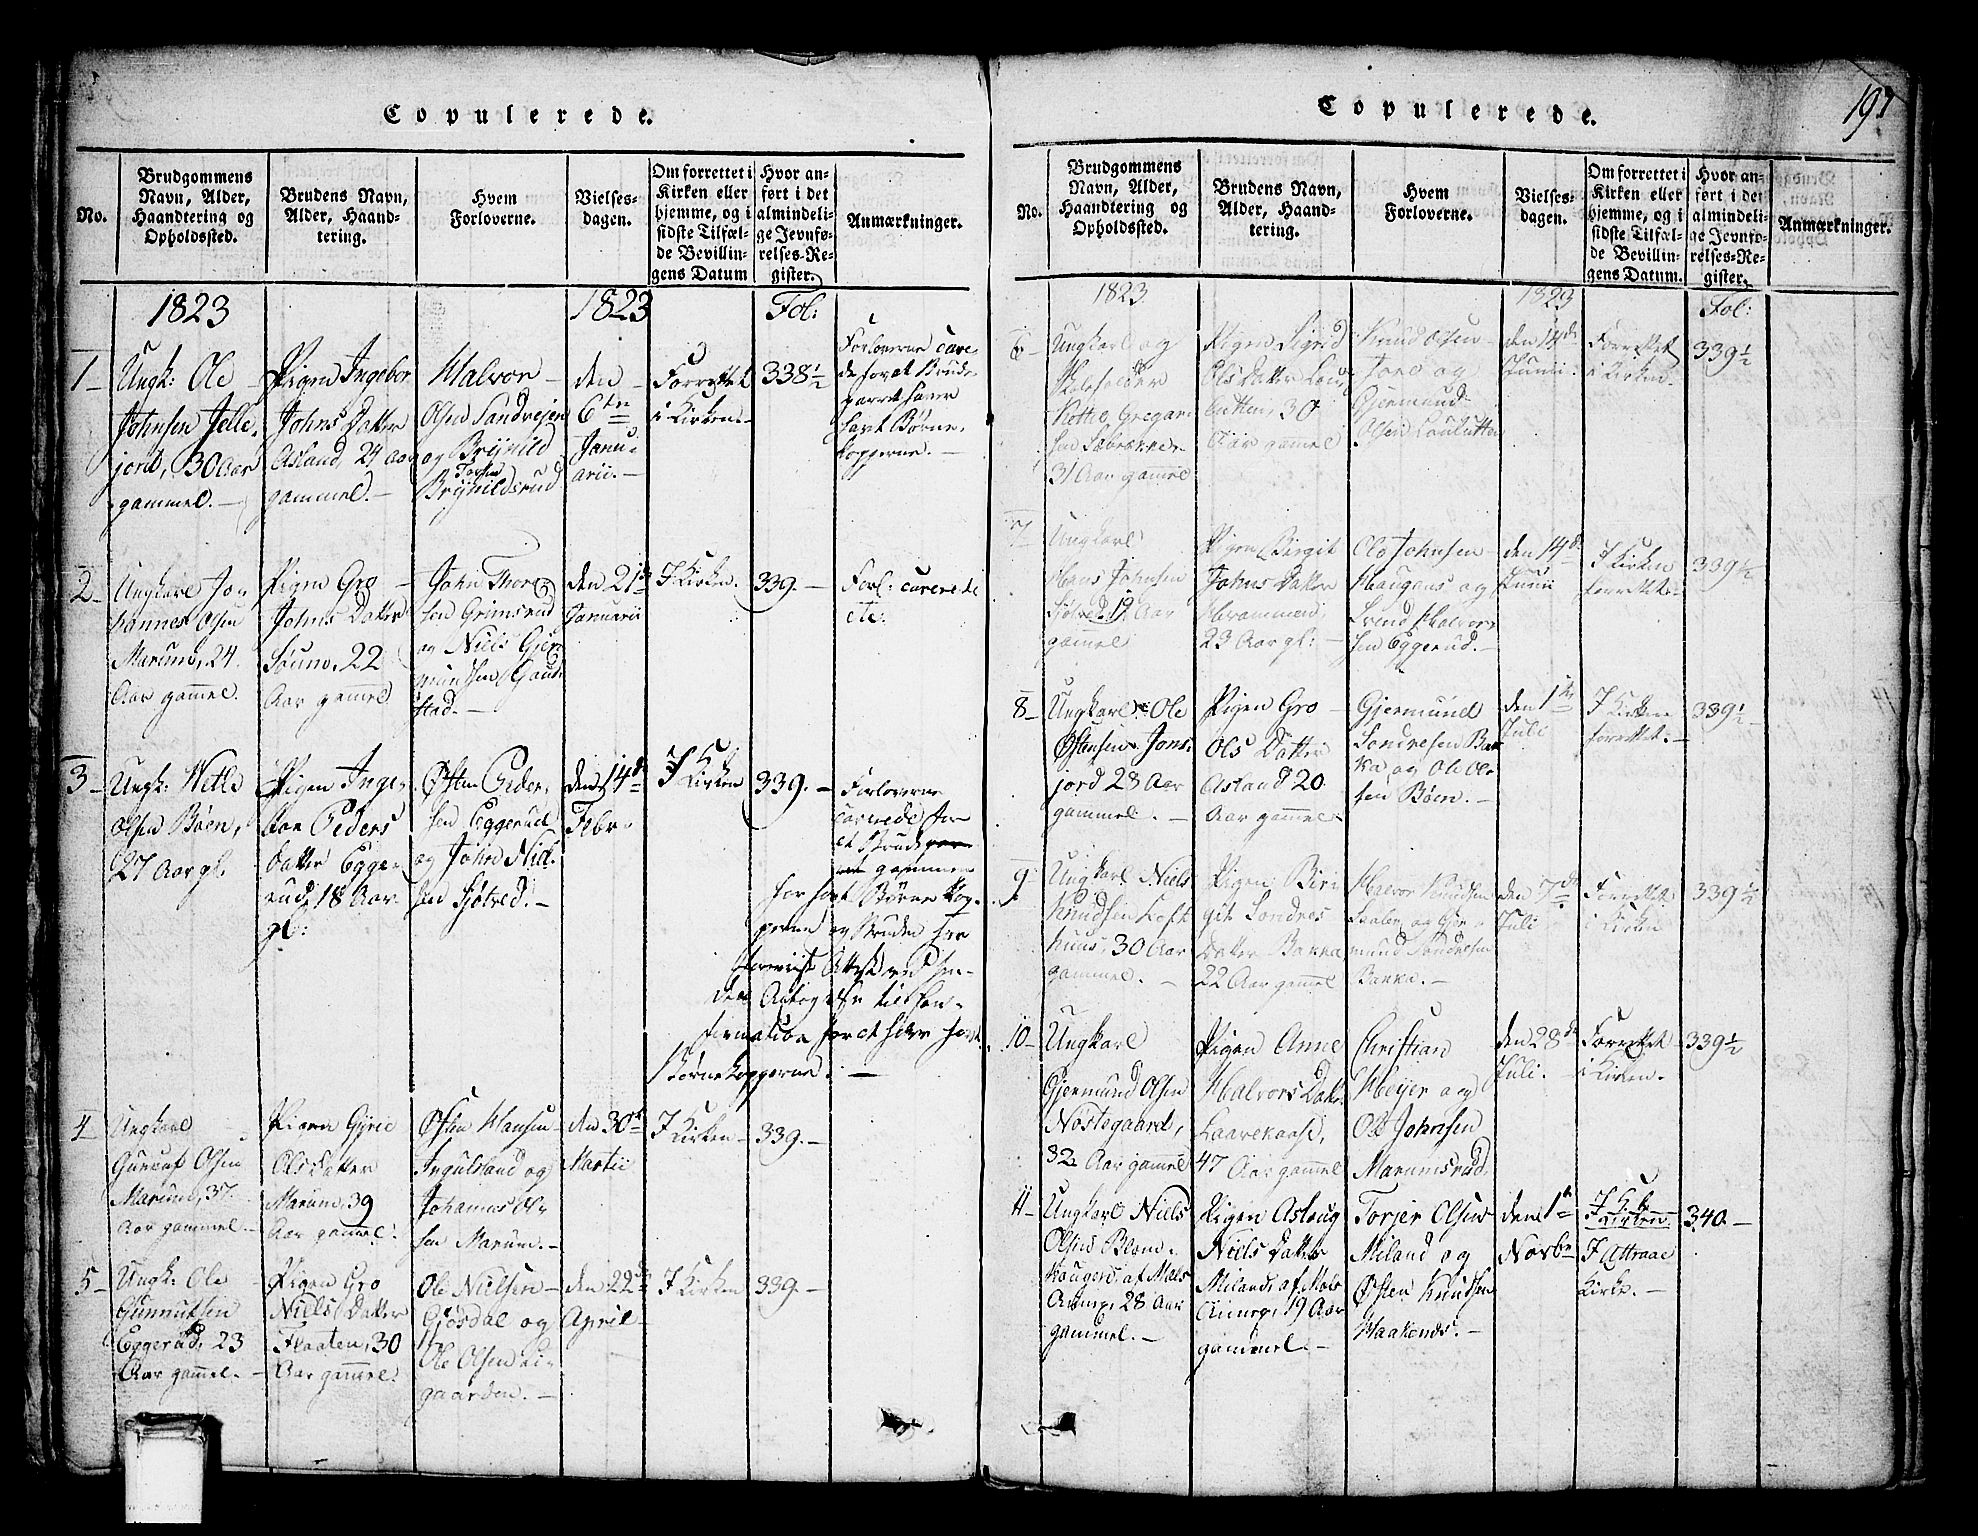 Copulerede.
No.
Brudgommens
Navn, Alder,
Haandtering og
Opholdssted.
Brudens Navn,
Alder, Haand-
tering.
Hvem
Forloverne.
Vielses-
dagen.
Om forrettet i
Kirken eller
hjemme, og i
sidste Tilfæl-
de Bevillin-
gens Datum
Hvor an-
ført i det
almindeli-
ge Jevnfø-
relses-Re-
gister.
Anmærkninger.
1823
1823
Fol:
1
Ungk: Ole
Johnsen Jelle,
jord, 30 Aar
gammel.
Pigen Ingebor
Johns Datter
Asland, 24 aar
gammel.
Halvor
Olsen Sandvejen
og Brynild
Brynildsrud
den
6te
Janu-
arii.
Forrettet
i Kirken.
338½
Forloverne cave-
de for at Brude-
parret haver
havt Børne-
kopperne.
2
Ungkarl Jo-
hannes Olsen
Marum, 24
Aar gamel.
Pigen Gro
Johns Datter
Soum, 22
Aar gamel
John Thore-
sen Grimsrud
og Niels Gjer-
mundsen Gaud-
stad.
den 21de
Januarii
I Kirken.
339.
Forl: caverede
etc:
3
Ungk: Hetle
Olsen Bøen,
27 Aar gl.
Pigen Inge-
Peders
Datter Egge-
rud, 18 Aar
gl:
Østen Peder-
sen Eggerud
og John Niel-
sen Sjøtved.
den 14de
Febr.
I Kirken
339.
Forloverne
caverede for
at Brudgommen
har havt Børnekop-
perne og Bruden har
Attest ved hen-
des Antagelse til Con-
firmation for at have havt
Børnekopperne.
4
Ungkarl
Gunnuf Olsen
Marum, 37
Aar gammel.
Pigen Gyrie
Olsdatter
Marum, 39
Aar gammel.
Østen Hansen
Ingulsland og
Johannes Ol-
sen Marum.
den 30te
Martii
I Kirken
339.
5
Ungk: Ole
Gunnulfsen
Eggerud, 23
Aar gamel.
Pigen Gro
Niels Datter
Flaaten, 30
Aar gamel.
Ole Nielsen
Gjøsdal og
Ole Olsen Li-
gaarden.
den 22de
April
I Kirken
339
Copulerede.
197
No.
Brudgommens
Navn, Alder,
Haandtering og
Opholdssted.
Brudens Navn,
Alder, Haand-
tering.
Hvem
Forloverne.
Vielses-
dagen.
Om forrettet i
Kirken eller
hjemme, og i
sidste Tilfæl-
de Bevillin-
gens Datum.
Hvor an-
ført i det
almindeli-
ge Jevnfø-
relses-Re-
gister.
Anmærkninger.
1823
1823
Fol:
6
Ungkarl og
Skoleholder
31 Aar gamel
Pigen Sigrid
Ols Datter Lou-
lutten, 30
Aar gamel
Knud Olsen
og
Gjermund
Olsen Loulutten
den
Junii
Forrettet
i Kirken.
339½
7
Ungkarl
Hans Johnsen
Aar
gamel
Pigen Birgit
Johns Datter
23 Aar gl:
Ole Johnsen
Haugens og
Svend Halvor-
sen Eggerud.
den 14de
Junii
I Kirken
forrettet.
339½
8
Ungkarl Ole
Østensen Jons-
jord 28 Aar
gammel.
Pigen Gro
Ols Datter
Asland 20
Aar gammel
Gjermund
Sondresen Bak-
ka og Ole Ol-
sen Bøen.
den 1ste
Juli
I Kirken
forrettet.
339½
9
Ungkarl Niels
Knudsen Loft-
huus, 30 Aar
gammel.
Pigen Biri-
git Sondres
Datter Bakka
22 Aar gamel
Halvor Knudsen
og Gjer-
mund Sondresen
Bakka.
den 7de
Juli
Forrettet
i Kirken
339½
10
Ungkarl
Gjermund Olsen
Nøstegaard,
32 Aar gamel
Pigen Anne
Halvors Datter
47 Aar gammel
Christian
Meyer og
Ole Johnsen
Marumsrud
den 28de
Juli.
Forrettet
i Kirken.
339½
11
Ungkarl Niels
Olsen Blom-
28 Aar
gammel.
Pigen Aslaug
Niels Datter
Miland, af
19 Aar
gammel.
Torjer Olsen
Miland og
Østen Knudsen
Haakenes.
den 1te
Novbr
I Kirken
I Attraae
Kirke.
340